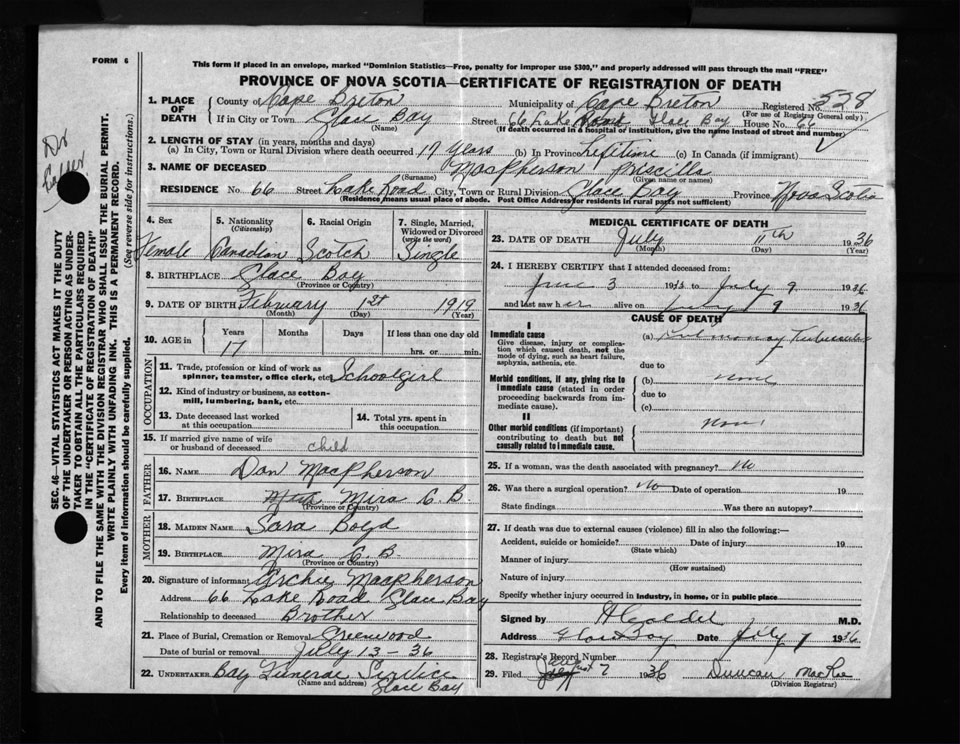 FORM 6
This form if placed in an envelope, marked "Dominion Statistics—Free, penalty for improper use $300," and properly addressed will pass through the mail "FREE"
PROVINCE OF NOVA SCOTIA—CERTIFICATE OF REGISTRATION OF DEATH
1. PLACE OF DEATH
County of Cape Breton Municipality of Cape Breton Registered No. 528
(For use of Registrar General only)
If in City or Town Glace Bay Street 66 Lake Road Glace Bay House No. 66
(Name) (If death occurred in a hospital or institution, give the name instead of street and number)
2. LENGTH OF STAY (in years, months and days)
(a) In City, Town or Rural Division where death occurred 17 years (b) In Province Lifetime (c) In Canada (if immigrant)
3. NAME OF DECEASED MacPherson Priscilla
(Surname) (Given name or names)
RESIDENCE No. 66 Street Lake Road City, Town or Rural Division Glace Bay Province Nova Scotia
(Residence means usual place of abode. Post Office Address for residents in rural parts not sufficient)
4. Sex Female
5. Nationality (Citizenship) Canadian
6. Racial Origin Scotch
7. Single, Married, Widowed or Divorced (write the word) Single
8. BIRTHPLACE Glace Bay
(Province or Country)
9. DATE OF BIRTH February 1st 1919
(Month) (Day) (Year)
10. AGE in Years Months Days If less than one day old
17 hrs. or min.
OCCUPATION
11. Trade, profession or kind of work as spinner, teamster, office clerk, etc. Schoolgirl
12. Kind of industry or business, as cotton-mill, lumbering, bank, etc.
13. Date deceased last worked at this occupation
14. Total yrs. spent in this occupation
15. If married give name of wife or husband of deceased child
FATHER
16. NAME Dan MacPherson
17. BIRTHPLACE Mira C.B.
(Province or Country)
MOTHER
18. MAIDEN NAME Sara Boyd
19. BIRTHPLACE Mira C.B.
(Province or Country)
20. Signature of informant Archie Macpherson
Address 66 Lake Road Glace Bay
Relationship to deceased Brother
21. Place of Burial, Cremation or Removal Greenwood
Date of burial or removal July 13-36
22. UNDERTAKER Bay Funeral Service
(Name and address) Glace Bay
MEDICAL CERTIFICATE OF DEATH
23. DATE OF DEATH July 11th 1936
(Month) (Day) (Year)
24. I HEREBY CERTIFY that I attended deceased from:
June 3 19 to July 9 1936
and last saw her alive on July 9 1936
CAUSE OF DEATH
I
Immediate cause (a) Pulmonary Tuberculosis
Give disease, injury or complication which caused death, not the mode of dying, such as heart failure, asphyxia, asthenia, etc.
due to
Morbid conditions, if any, giving rise to immediate cause (stated in order proceeding backwards from immediate cause).
(b) none
due to
(c)
II
Other morbid conditions (if important) contributing to death but not causally related to immediate cause. none
25. If a woman, was the death associated with pregnancy? No
26. Was there a surgical operation? No Date of operation 19
State findings Was there an autopsy?
27. If death was due to external causes (violence) fill in also the following:—
Accident, suicide or homicide? Date of injury 19
(State which)
Manner of injury
(How sustained)
Nature of injury
Specify whether injury occurred in industry, in home, or in public place
Signed by M.D.
Address Glace Bay Date July 1936
28. Registrar's Record Number
29. Filed August 7 1936 Duncan MacRae
(Division Registrar)
SEC. 46—VITAL STATISTICS ACT MAKES IT THE DUTY
OF THE UNDERTAKER OR PERSON ACTING AS UNDER-
TAKER TO OBTAIN ALL THE PARTICULARS REQUIRED
IN THE "CERTIFICATE OF REGISTRATION OF DEATH"
AND TO FILE THE SAME WITH THE DIVISION REGISTRAR WHO SHALL ISSUE THE BURIAL PERMIT.
WRITE PLAINLY WITH UNFADING INK. THIS IS A PERMANENT RECORD.
Every item of information should be carefully supplied. (See reverse side for instructions.)
Dr